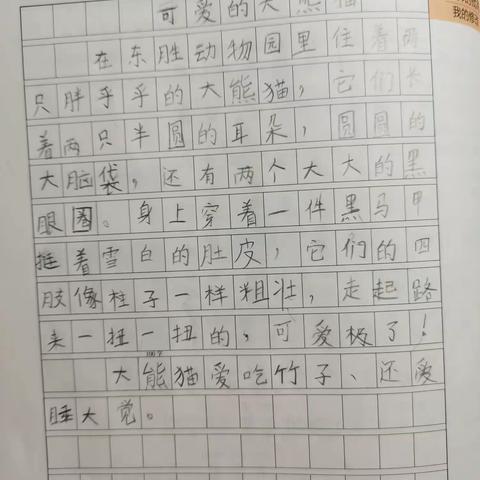 我的修改
可爱的大熊猫
在东胜动物园里住着两
只胖乎乎的大熊猫，它们长
着两只半圆的耳朵，圆圆的
大脑袋，还有两个大大的黑
眼圈。身上穿着一件黑马甲
挺着雪白的肚皮，它们的四
肢像柱子一样粗壮，走起路
来一扭一扭的，可爱极了！
大熊猫爱吃竹子、还爱
睡大觉。